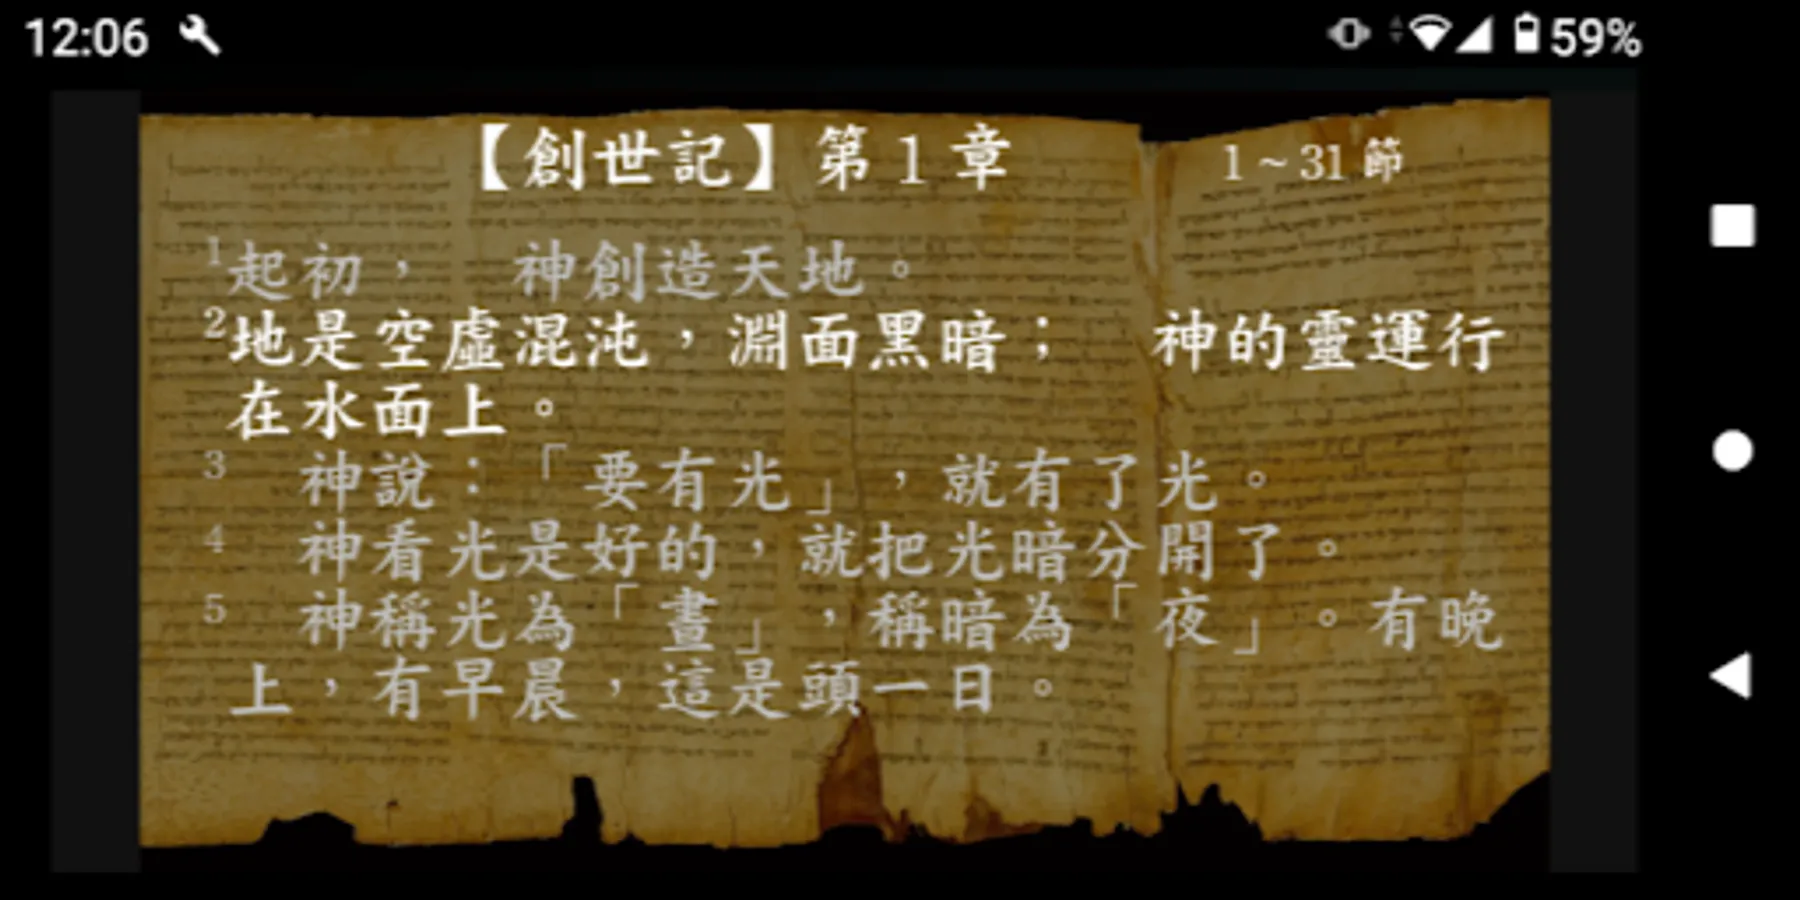 12:06
59%
【創世記】第1章 1~31節
1起初， 神創造天地。
2地是空虛混沌，淵面黑暗； 神的靈運行
在水面上。
3 神說：「要有光」，就有了光。
4 神看光是好的，就把光暗分開了。
5 神稱光為「晝」，稱暗為「夜」。有晚
上，有早晨，這是頭一日。